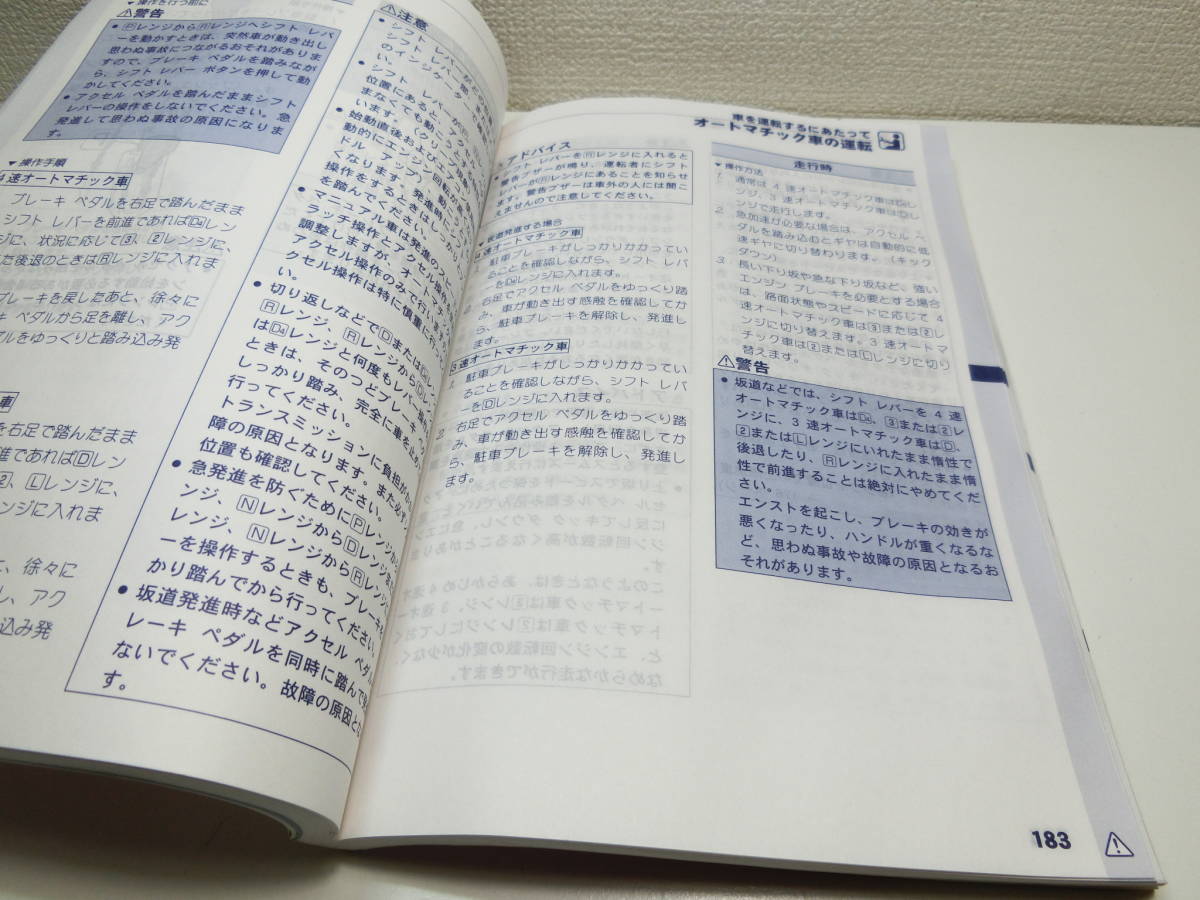 ▼操作を行う前に
⚠警告
● PレンジからRレンジへシフト レバ
ーを動かすときは、突然車が動き出し
思わぬ事故につながるおそれがありま
すので、ブレーキ ペダルを踏みなが
ら、シフト レバー ボタンを押して動
かしてください。
● アクセル ペダルを踏んだままシフト
レバーの操作をしないでください。急
発進して思わぬ事故の原因になりま
す。
▼操作手順
4速オートマチック車
ブレーキ ペダルを右足で踏んだまま
シフト レバーを前進であればD4レン
ジに、状況に応じて3、2レンジに、
た後退のときはRレンジに入れま
ブレーキを戻したあと、徐々に
キ ペダルから足を離し、アク
ルをゆっくりと踏み込み発
車
を右足で踏んだまま
進であればDレン
2、Lレンジに、
ンジに入れま
、徐々に
し、アク
込み発
⚠注意
● シフト レバーが
のインジケーター
い。
● シフト レバーが
位置にあると、アクセル
まなくても動き
います。（クリープ
● 始動直後およびエアコン
動的にエンジン回転が
ドル アップ）、動き
くなります。発進時
操作をするときはしっかり
を踏んでください。
● マニュアル車は発進のス
ラッチ操作とアクセル操作
調整しますが、オートマ
アクセル操作のみで行います
クセル操作は特に慎重に行
い。
● 切り返しなどでDまたは
Rレンジ、Rレンジから
はD4レンジと何度もレバー操作
ときは、そのつどブレーキ
しっかり踏み、完全に車を止め
行ってください。
トランスミッションに負担がか
障の原因となります。また必ず、
位置も確認してください。
● 急発進を防ぐためにPレンジから
ンジ、NレンジからDレンジまた
レンジ、NレンジからRレンジ
ーを操作するときも、ブレーキを
かり踏んでから行ってください。
● 坂道発進時などアクセル ペダル
レーキ ペダルを同時に踏んで
ないでください。故障の原因とな
す。
車を運転するにあたって
オートマチック車の運転
アドバイス
レバーをRレンジに入れると
警告ブザーが鳴り、運転者にシフト
レバーがRレンジにあることを知らせ
ます。警告ブザーは車外の人には聞こ
えませんので注意してください。
坂道発進する場合
速オートマチック車
駐車ブレーキがしっかりかかってい
ることを確認しながら、シフト レバ
ーをD4レンジに入れます。
右足でアクセル ペダルをゆっくり踏
み、車が動き出す感触を確認してか
ら、駐車ブレーキを解除し、発進し
ます。
3速オートマチック車
1. 駐車ブレーキがしっかりかかってい
ることを確認しながら、シフト レバ
ーをDレンジに入れます。
2. 右足でアクセル ペダルをゆっくり踏
み、車が動き出す感触を確認してか
ら、駐車ブレーキを解除し、発進し
ます。
走行時
▼操作方法
1. 通常は4速オートマチック車はD4レ
ンジ、3速オートマチック車はDレ
ンジで走行します。
2. 急加速が必要な場合は、アクセル ペ
ダルを踏み込むとギヤは自動的に低
速ギヤに切り替わります。（キック
ダウン）
3. 長い下り坂や急な下り坂など、強い
エンジン ブレーキを必要とする場合
は、路面状態やスピードに応じて4
速オートマチック車は3または2レ
ンジに切り替えます。3速オートマ
チック車は2またはLレンジに切り
替えます。
⚠警告
● 坂道などでは、シフト レバーを4速
オートマチック車はD4、3または2レ
ンジに、3速オートマチック車はD、
2またはLレンジにいれたまま惰性で
後退したり、Rレンジに入れたまま惰
性で前進することは絶対にやめてくだ
さい。
エンストを起こし、ブレーキの効きが
悪くなったり、ハンドルが重くなるな
ど、思わぬ事故や故障の原因となるお
それがあります。
183